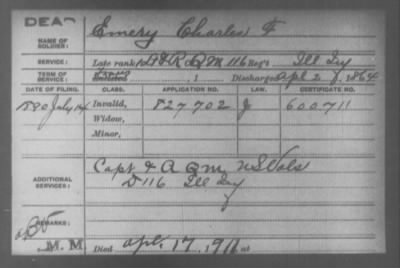 DEAD
NAME OF SOLDIER: Emery Charles F
SERVICE: Late rank, R.Q.M. 116 Reg't Ill Inf
TERM OF SERVICE: Enlisted , 1 Discharged Apl 2 , 1864
DATE OF FILING. CLASS. APPLICATION NO. LAW. CERTIFICATE NO.
1890 July Invalid, 827702 J 600711
Widow,
Minor,
ADDITIONAL SERVICES: Capt & A Q M U S Vols
D 116 Ill Inf
REMARKS:
M. M Died Apl. 17, 1911 at